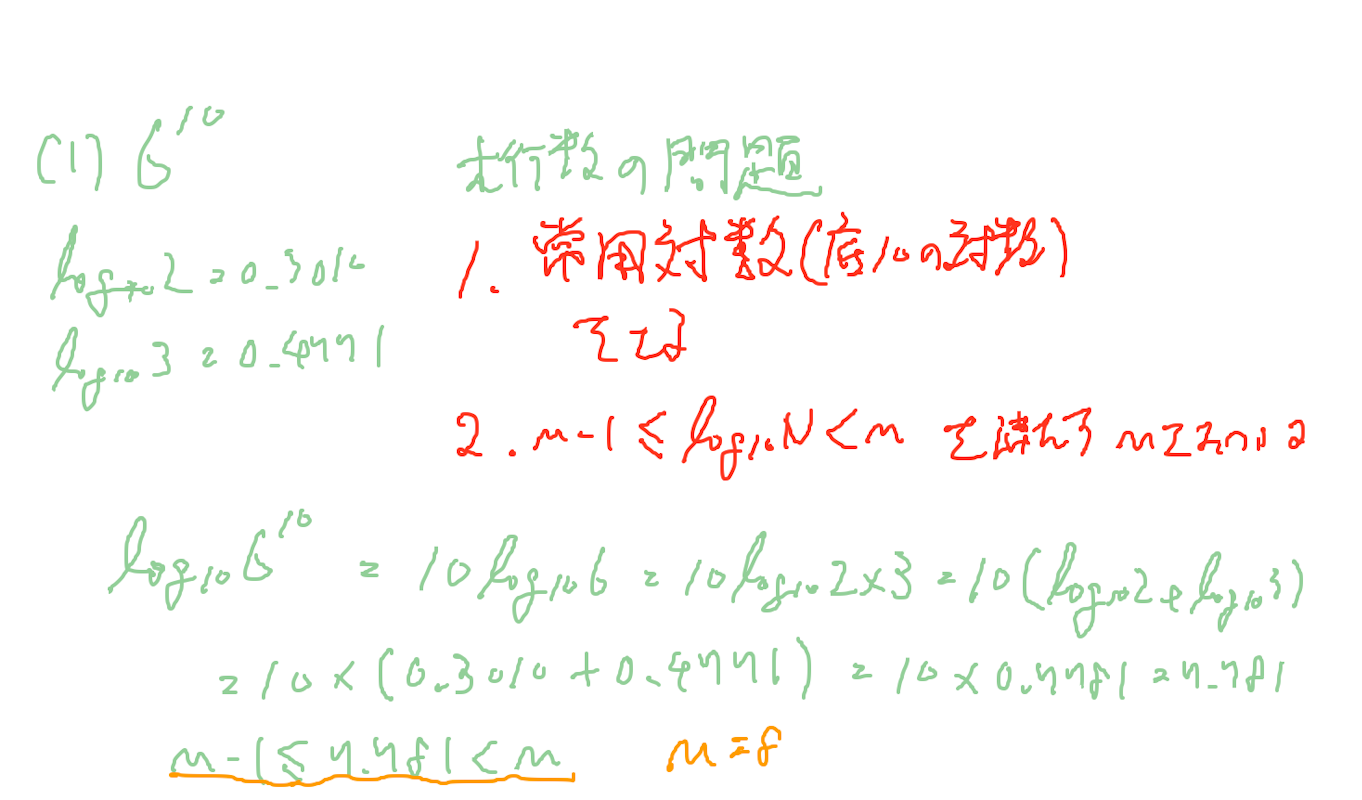 (1) 6^10
木行数の問題
log10 2 = 0.3010
log10 3 = 0.4771
1. 常用対数(底10の対数)
をとる
2. n-1 ≦ log10 N < n を満たす nを
log10 6^10 = 10 log10 6 = 10 log10 2×3 = 10(log10 2 + log10 3)
= 10 × (0.3010 + 0.4771) = 10 × 0.7781 = 7.781
n-1 ≦ 7.781 < n n = 8